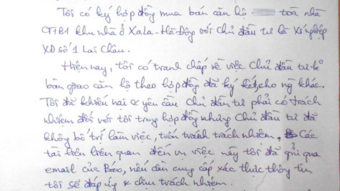 Tôi có ký hợp đồng mua bán căn hộ toà nhà
CT1B1 khu nhà ở Xala. Hà đông với Chủ đầu tư là Xí nghiệp
XD số 1 Lai Châu.
Hiện nay, tôi có tranh chấp về việc Chủ đầu tư
bàn giao căn hộ theo hợp đồng đã ký kết cho ng khác.
Tôi đã khiếu nại & yêu cầu Chủ đầu tư phải có trách
nhiệm đối với tôi trong hợp đồng nhưng Chủ đầu tư đã
không bố trí làm việc, trốn tránh trách nhiệm. Các
tài liệu liên quan đến vụ việc này tôi đã gửi qua
email của Báo, nếu cần cung cấp xác thực thông tin
tôi sẽ đáp ứng & chịu trách nhiệm.